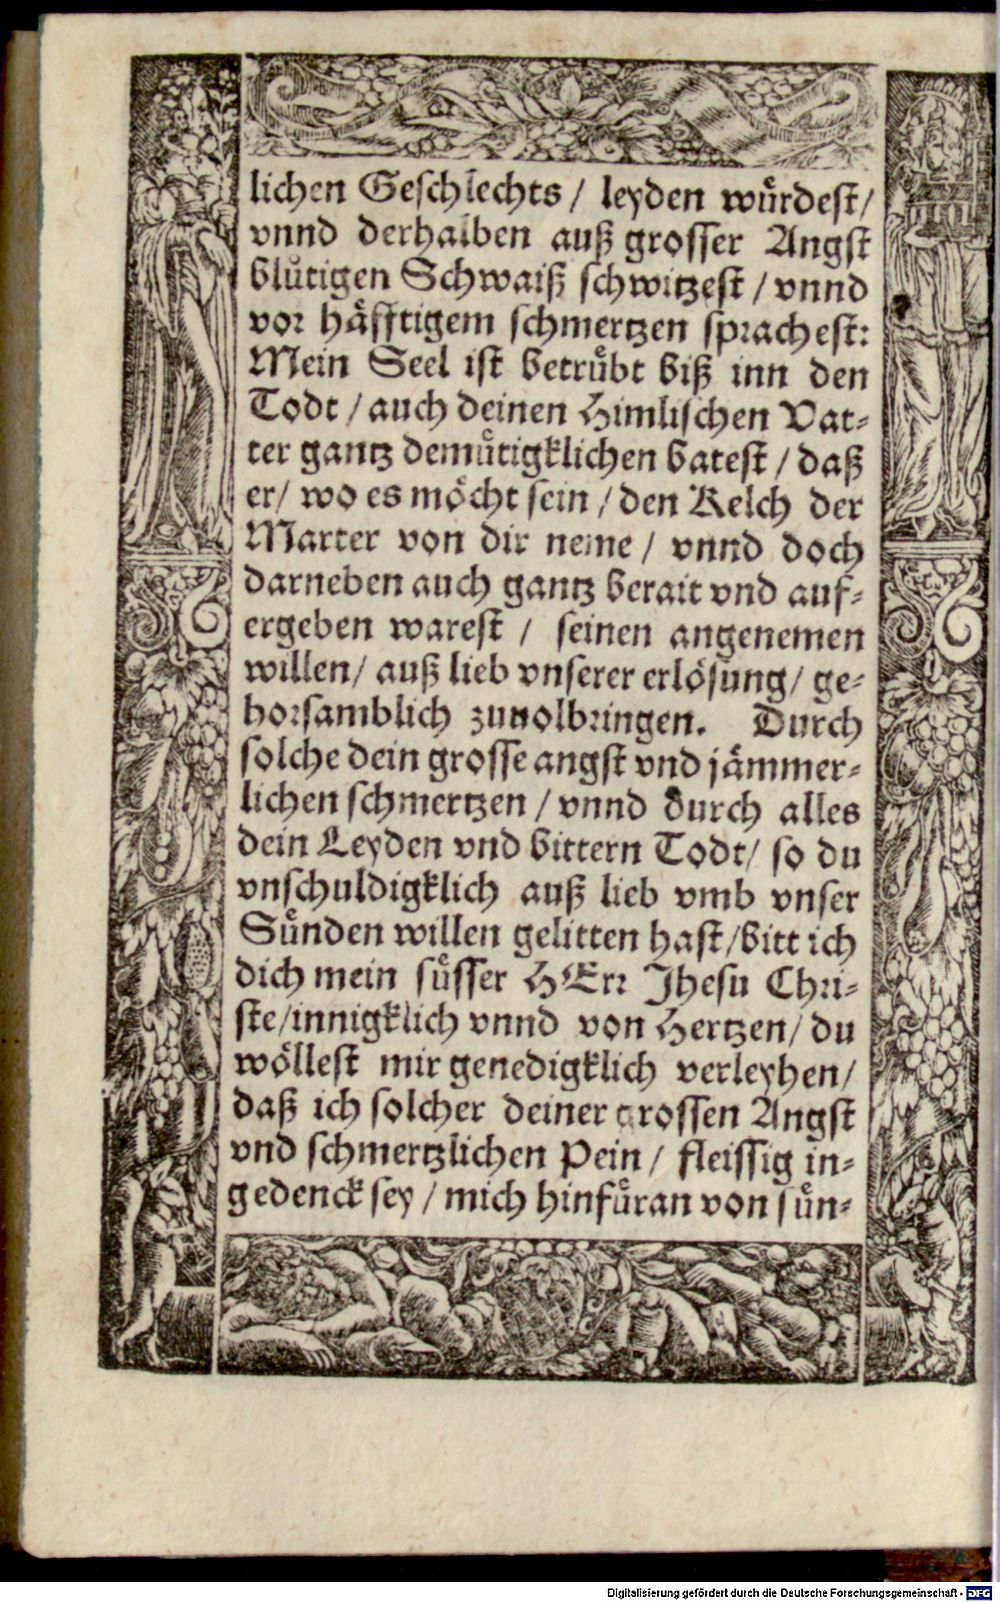 lichen Geschlechts / leyden wuͤrdest /
vnnd derhalben auß grosser Angst
bluͤtigen Schwaiß schwitzest / vnnd
vor haͤfftigem schmertzen sprachest:
Mein Seel ist betruͤbt biß inn den
Todt / auch deinen Himlischen Vat-
ter gantz demuͤtigklichen batest / daß
er / wo es moͤcht sein / den Kelch der
Marter von dir neme / vnnd doch
darneben auch gantz berait vnd auf-
ergeben warest / seinen angenemen
willen / auß lieb vnserer erloͤsung / ge-
horsamblich zuuolbringen. Durch
solche dein grosse angst vnd jaͤmmer-
lichen schmertzen / vnnd durch alles
dein Leyden vnd bittern Todt / so du
vnschuldigklich auß lieb vmb vnser
Suͤnden willen gelitten hast / bitt ich
dich mein suͤsser HErr Jhesu Chri-
ste / innigklich vnnd von Hertzen / du
woͤllest mir genedigklich verleyhen /
daß ich solcher deiner grossen Angst
vnd schmertzlichen Pein / fleissig in-
gedenck sey / mich hinfuͤran von suͤn-
Digitalisierung gefördert durch die Deutsche Forschungsgemeinschaft - DFG